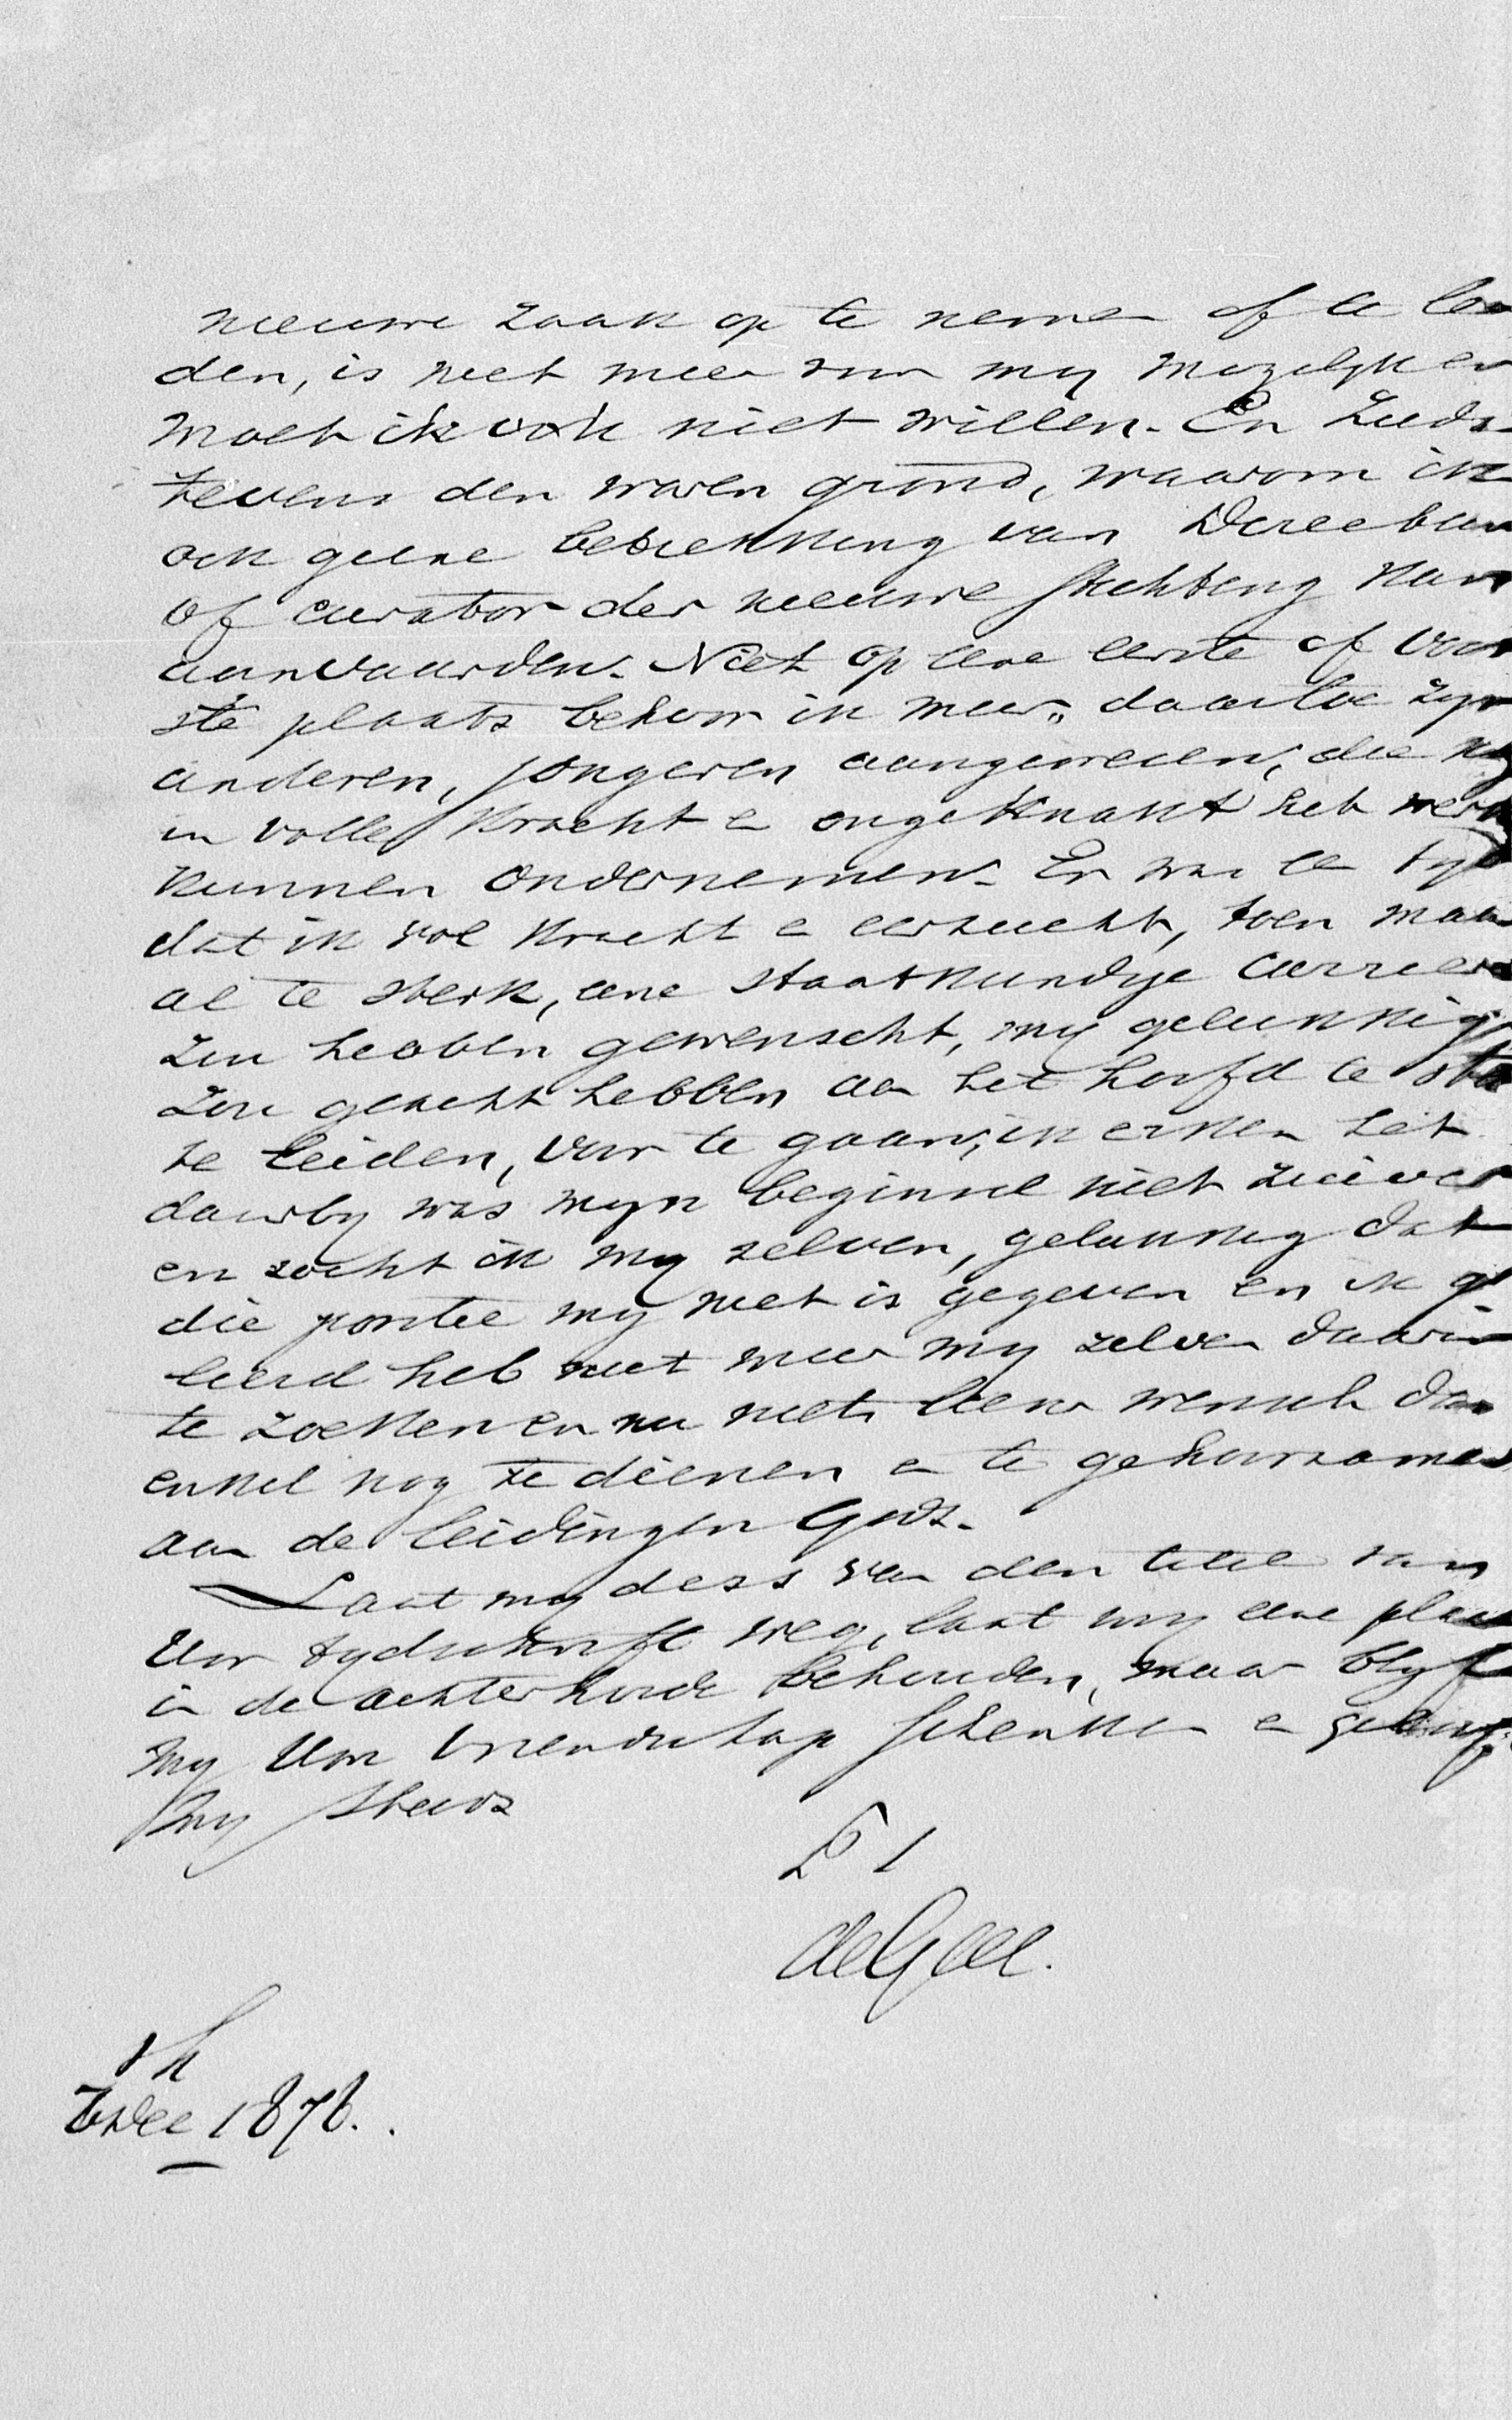 nieuwe zaak op te nemen of te lei
den, is niet meer voor my mogelyk en
moet ik ook niet willen. En
tevens den waren grond, waarom ik
ook geene betrekking van Directeur
of curator der nieuwe stichting kan
aanvaarden. Niet op eene eerste of voor
ste plaats behoor ik meer, daartoe zyn
anderen, jongeren aangewezen, die nog
in volle kracht en ongeknakt het werk
kunnen ondernemen. Er was een tyd
dat ik vol kracht en eerzucht, toen maar
al te sterk, eene staatkundige carriere
zou hebben gewenscht, my gelukkig
zou geacht hebben aan het hoofd te staan
te leiden, voor te gaan, ik erken het
daarby was myn beginsel niet zuiver
en zocht ik my zelven, gelukkig dat
die positie my niet is gegeven en ik ge
leerd heb niet meer my zelven daarin
te zoeken en nu niets liever wensch dan
enkel nog te dienen en te gehoorzamen
aan de leidingen Gods.
Laat my dess van den titel van
Uw tydschrift weg, laat my eene plaats
in de achterhoede behouden, maar blyf
my Uw vriendschap schenken en geloof
my steeds
de Geer.
Dec 1878.